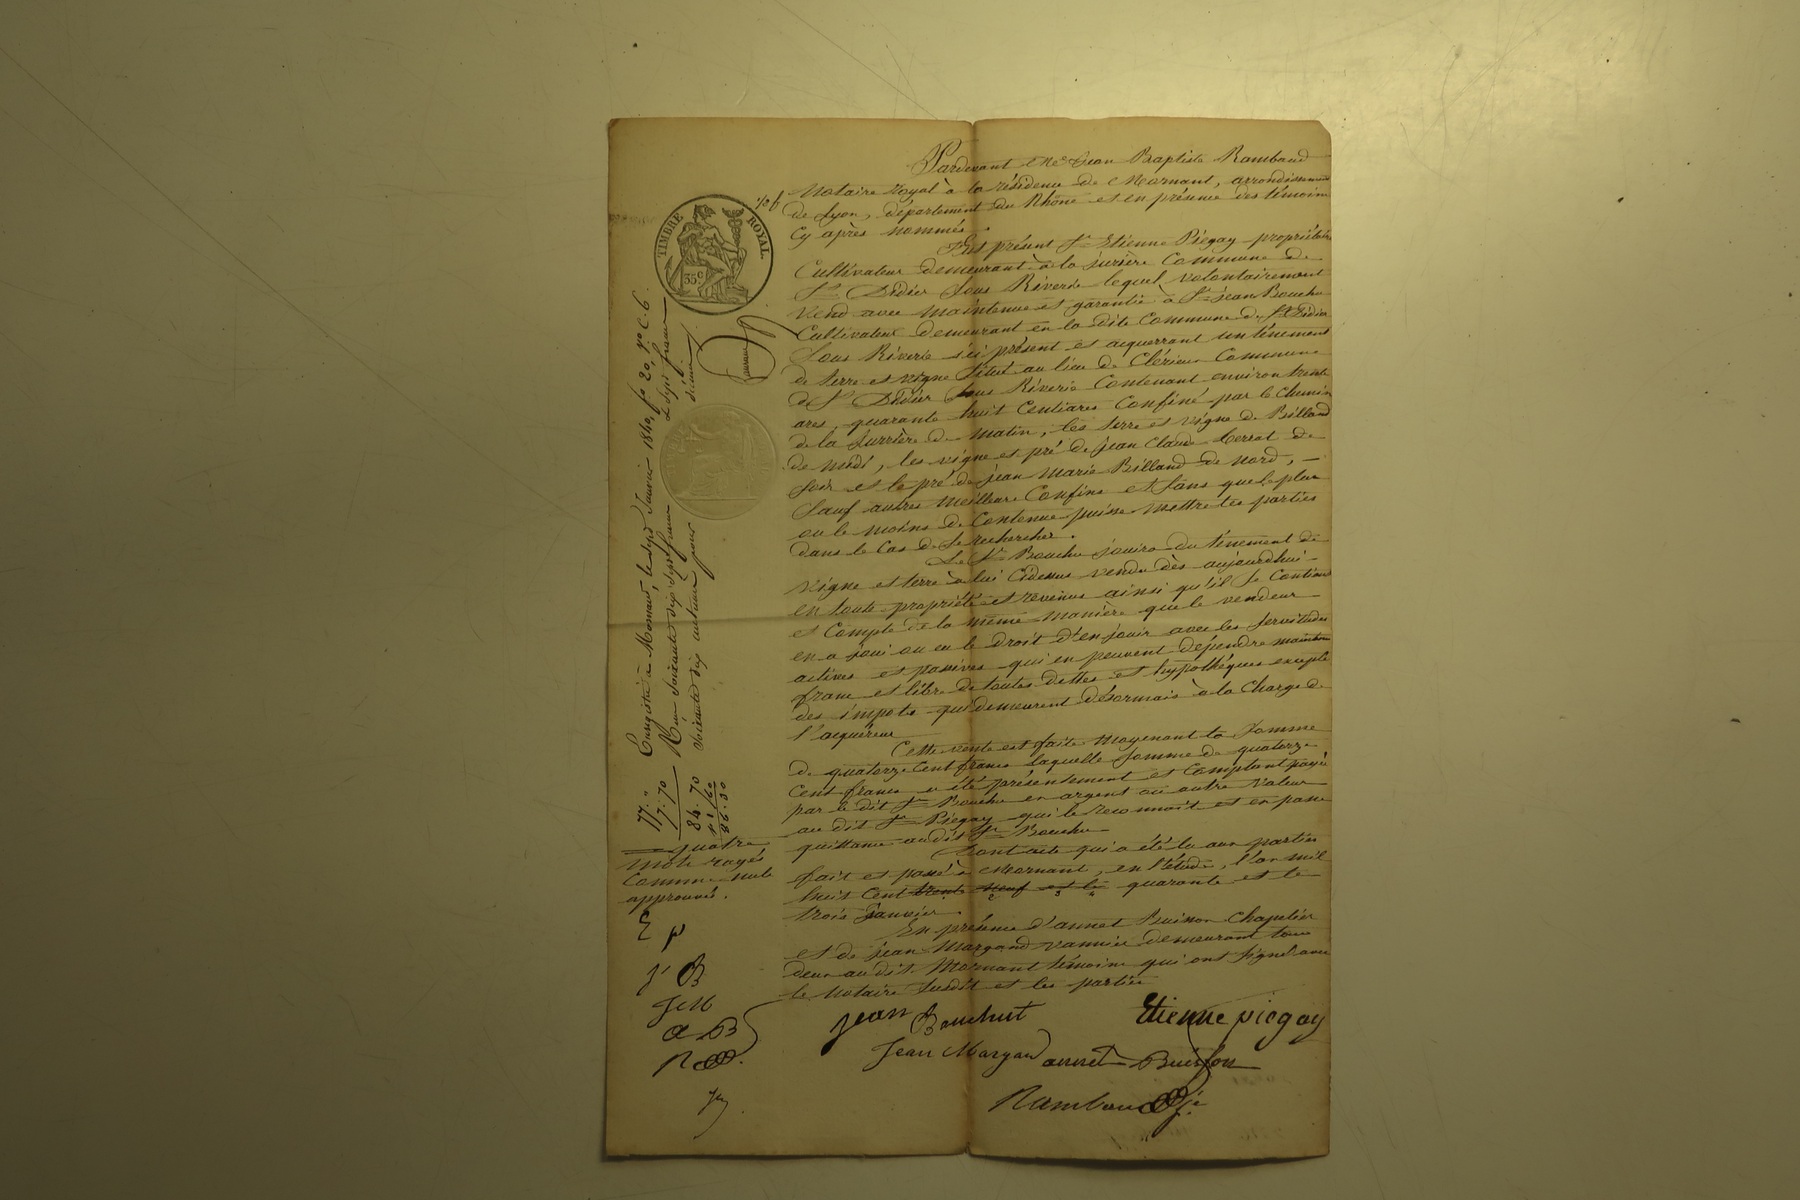 Pardevant Me Jean Baptiste Rambaud
Notaire royal à la résidence de Mornant, arrondissement
de Lyon, département du Rhône et en présence des témoins
Cy après nommés
Est présent Sr Etienne Piégay propriétaire
Cultivateur demeurant à la Commune de
St Didier sous Riverie lequel volontairement
vend avec maintenue et garantie à Sr jean Bouchu
Cultivateur demeurant en la dite Commune de St Didier
Sous Riverie ici présent et acquerrant un tènement
de terre et vigne situé au lieu de Clérieu Commune
de St Didier sous Riverie Contenant environ trente
ares, quarante huit Centiares Confiné par le Chemin
de la de matin, les terre et vigne de Billand
de midi, les vigne et pré de jean Claude de
soir et le pré de jean Marie Billand de nord, —
Sauf autres meilleurs Confins et sans que le plus
ou le moins de Contenue puisse mettre les parties
dans le Cas de se rechercher.
Le Sr Bouchu jouira du tènement de
vigne et terre à lui Cidessus vendu dès aujourdhui -
en toute propriété et revenus ainsi qu'il se Contient
et Compte de la même manière que le vendeur
en a joui ou eu le droit d'en jouir avec les servitudes
actives et passives qui en peuvent dépendre maintenu
franc et libre de toutes dettes et hypothèques excepté
des impots qui demeurent désormais à la Charge de
l'acquéreur
Cette vente est faite moyenant la Somme
de quatorze Cent francs laquelle somme de quatorze
Cent francs a été présentement et Comptant payée
par le dit Sr Bouchu en argent ou autre valeur
au dit Sr Piégay qui le reconnoit et en passe
quittance au dit Sr Bouchu
Dont acte qui a été lu aux parties
fait et passé à Mornant, en l'étude, l'an mil
huit Cent trente neuf et le quarante et le
trois janvier.
En présence d'annet Buisson Chapelier
et de jean Margand vannier demeurant tous
deux au dit Mornant témoins qui ont signé avec
le Notaire susdit et les parties
Jean Bouchut
Etienne piegay
Jean Margand
annet Buisson
Rambaud
TIMBRE ROYAL.
35c
Enregistré à Mornant, le sept Janvier 1840, fo 20, Vo C. 6.
Reçu soixante dix sept francs
décime
77. "
7. 70
84. 70
1. 60
86. 30
quatre
mots rayés
Comme nuls
approuvés.
E P
J B
J M
a B
R